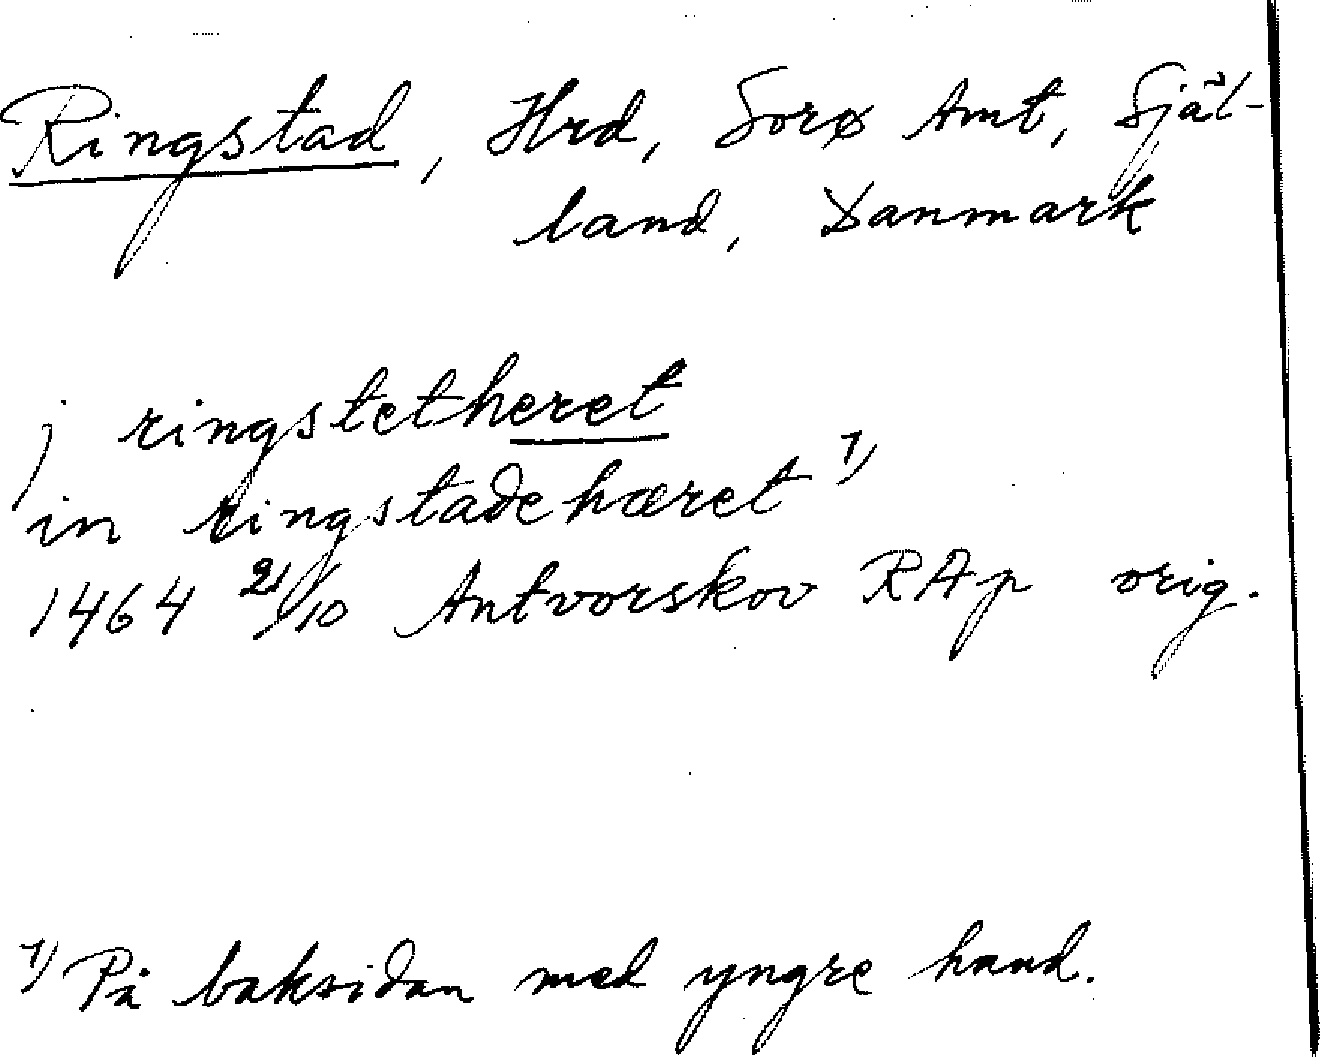 Ringstad, Hrd, Sorø Amt, Själ-
land, Danmark
j ringstetheret
in ringstadehæret 1)
1464 21/10 Antvorskov RAp orig.
1) På baksidan med yngre hand.